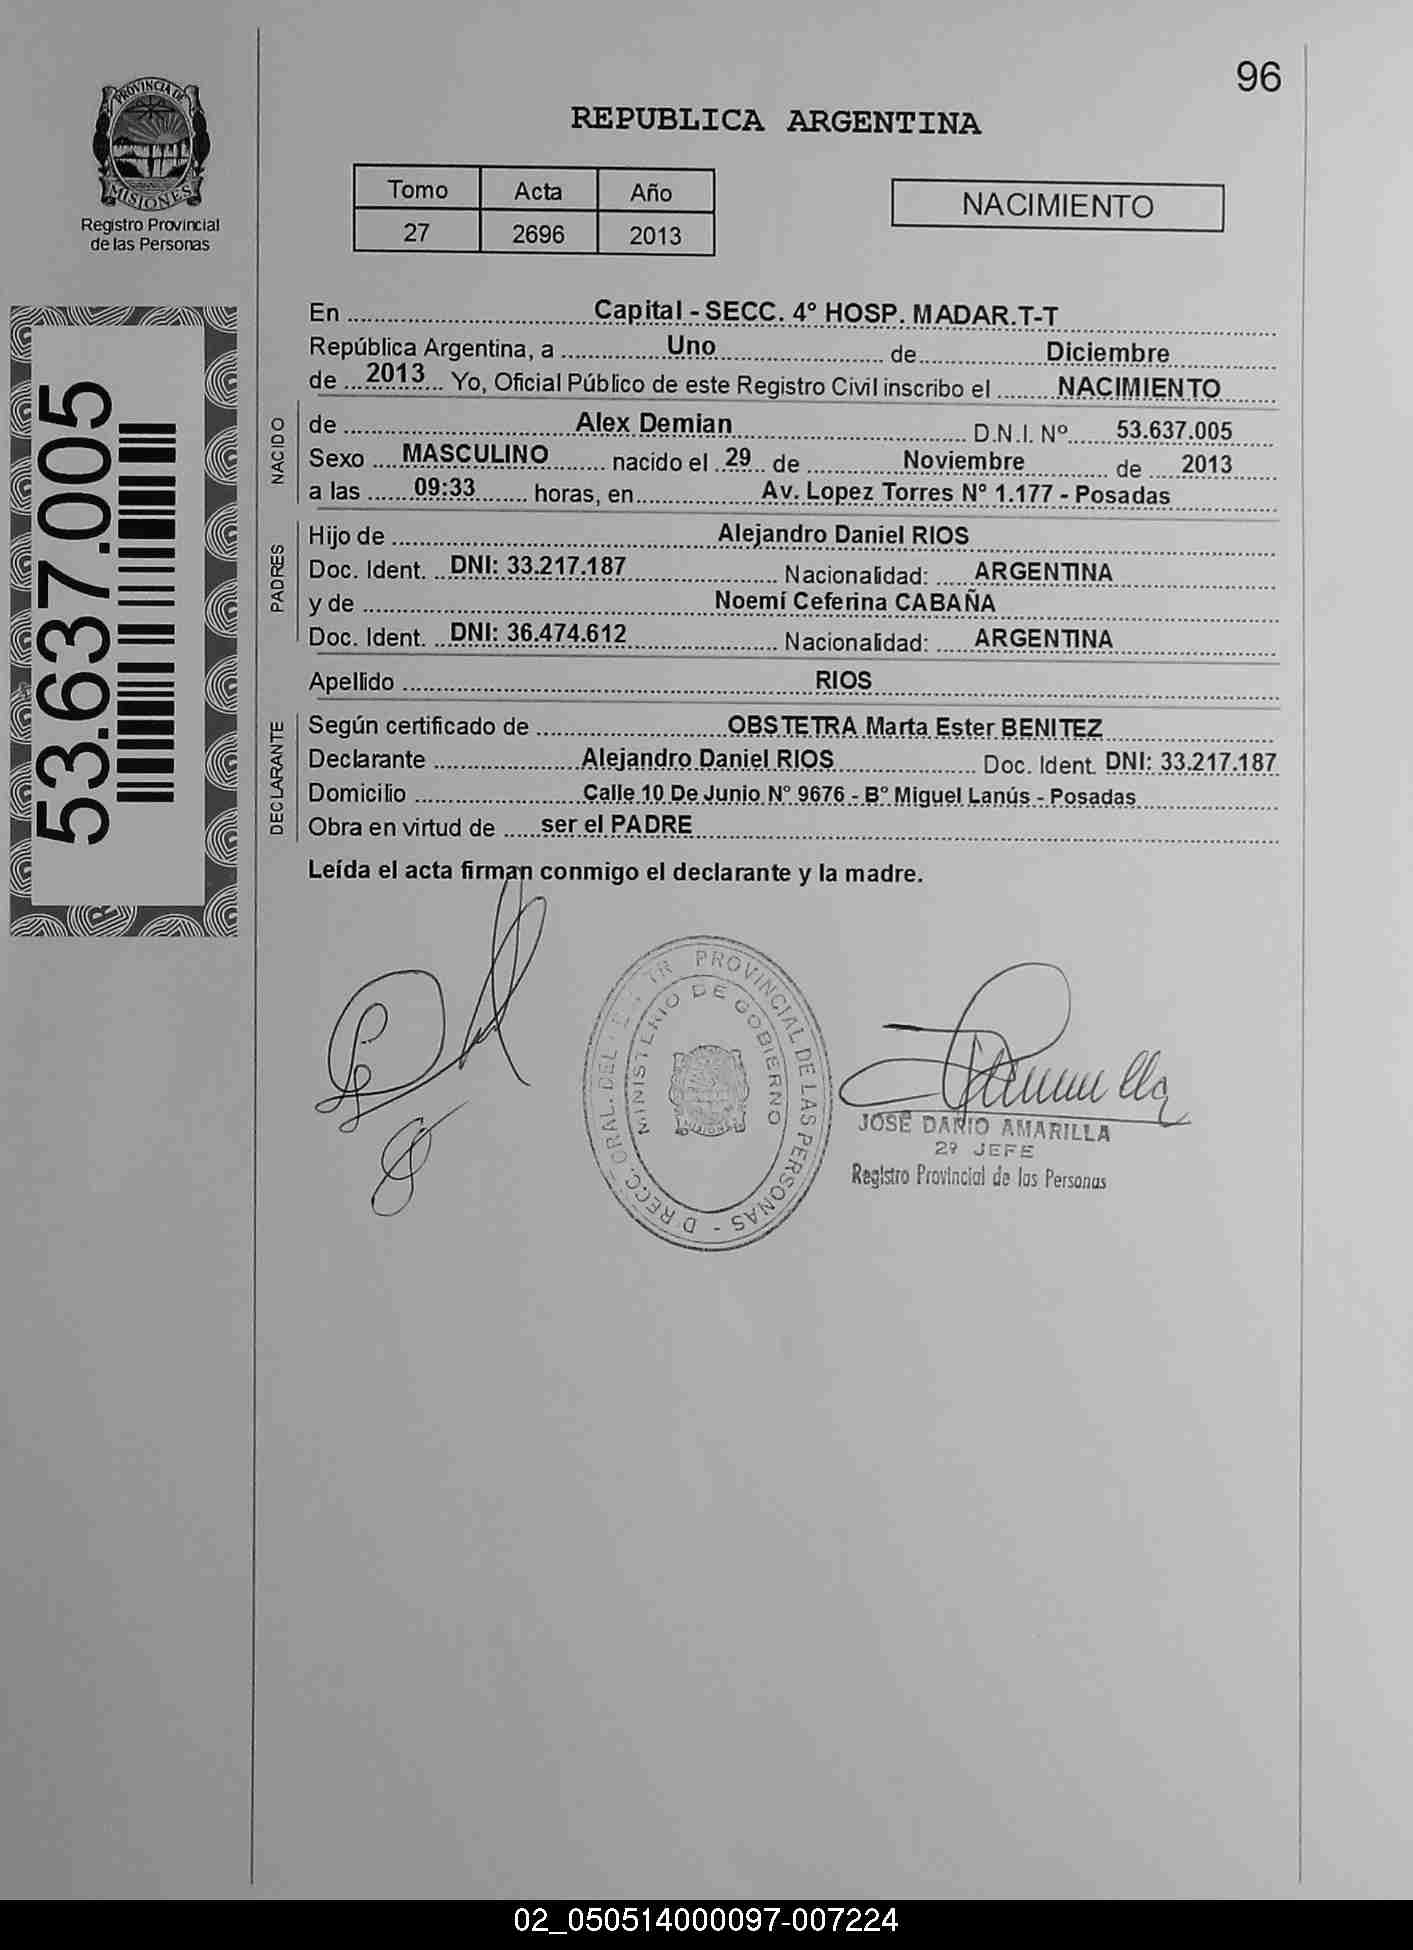 96
PROVINCIA DE
MISIONES
Registro Provincial
de las Personas
REPUBLICA ARGENTINA
Tomo Acta Año
27 2696 2013
NACIMIENTO
53.637.005
En Capital - SECC. 4° HOSP. MADAR.T-T
República Argentina, a Uno de Diciembre
de 2013 Yo, Oficial Público de este Registro Civil inscribo el NACIMIENTO
NACIDO
de Alex Demian D.N.I. Nº 53.637.005
Sexo MASCULINO nacido el 29 de Noviembre de 2013
a las 09:33 horas, en Av. Lopez Torres N° 1.177 - Posadas
PADRES
Hijo de Alejandro Daniel RIOS
Doc. Ident. DNI: 33.217.187 Nacionalidad: ARGENTINA
y de Noemí Ceferina CABAÑA
Doc. Ident. DNI: 36.474.612 Nacionalidad: ARGENTINA
Apellido RIOS
DECLARANTE
Según certificado de OBSTETRA Marta Ester BENITEZ
Declarante Alejandro Daniel RIOS Doc. Ident. DNI: 33.217.187
Domicilio Calle 10 De Junio N° 9676 - B° Miguel Lanús - Posadas
Obra en virtud de ser el PADRE
Leída el acta firman conmigo el declarante y la madre.
PROVINCIAL DE LAS PERSONAS
MINISTERIO DE GOBIERNO
JOSE DARIO AMARILLA
2º JEFE
Registro Provincial de las Personas
02_050514000097-007224